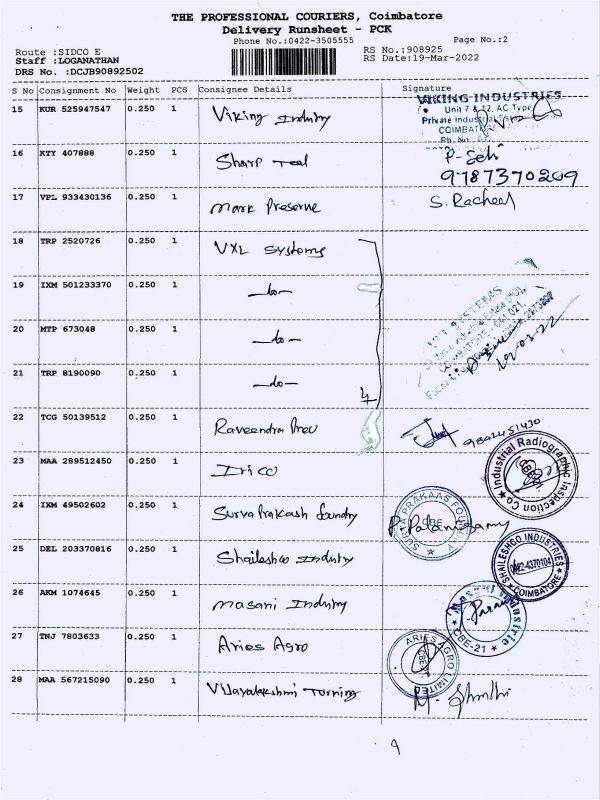 THE PROFESSIONAL COURIERS, Coimbatore
Delivery Runsheet - PCK
Phone No.:0422-3505555 Page No.:2
Route :SIDCO E RS No.:908925
Staff :LOGANATHAN RS Date:19-Mar-2022
DRS No. :DCJB90892502
S No Consignment No Weight PCS Consignee Details Signature
15 KUR 525947547 0.250 1 Viking Industry
VIKING INDUSTRIES
Unit 7 & 12, AC Type
Private Industrial Estate
COIMBAT
16 KTY 407888 0.250 1 Sharp Teal P. Selvi
9787370209
17 VPL 933430136 0.250 1 Mark Preserve S. Racheal
18 TRP 2520726 0.250 1 VXL Systems
19 IXM 501233370 0.250 1 —do—
20 MTP 673048 0.250 1 —do—
21 TRP 8190090 0.250 1 —do—
4
22 TCG 50139512 0.250 1 Raveendra 9842451430
23 MAA 289512450 0.250 1 Irico
Industrial Radiographic Inspection Co
24 IXM 49502602 0.250 1 Surya Prakash foundry P. Palanisamy
SURYA PRAKAAS FOUNDRY
CBE
25 DEL 203370816 0.250 1 Shaileshco Industry
SHAILESHCO INDUSTRIES
0422-4370104
COIMBATORE
26 AKM 1074645 0.250 1 Masani Industry
Masani Industrie
CBE-21
27 TNJ 7803633 0.250 1 Aries Agro
ARIES AGRO LIMITED
28 MAA 567215090 0.250 1 Vijayalakshmi Turning
9